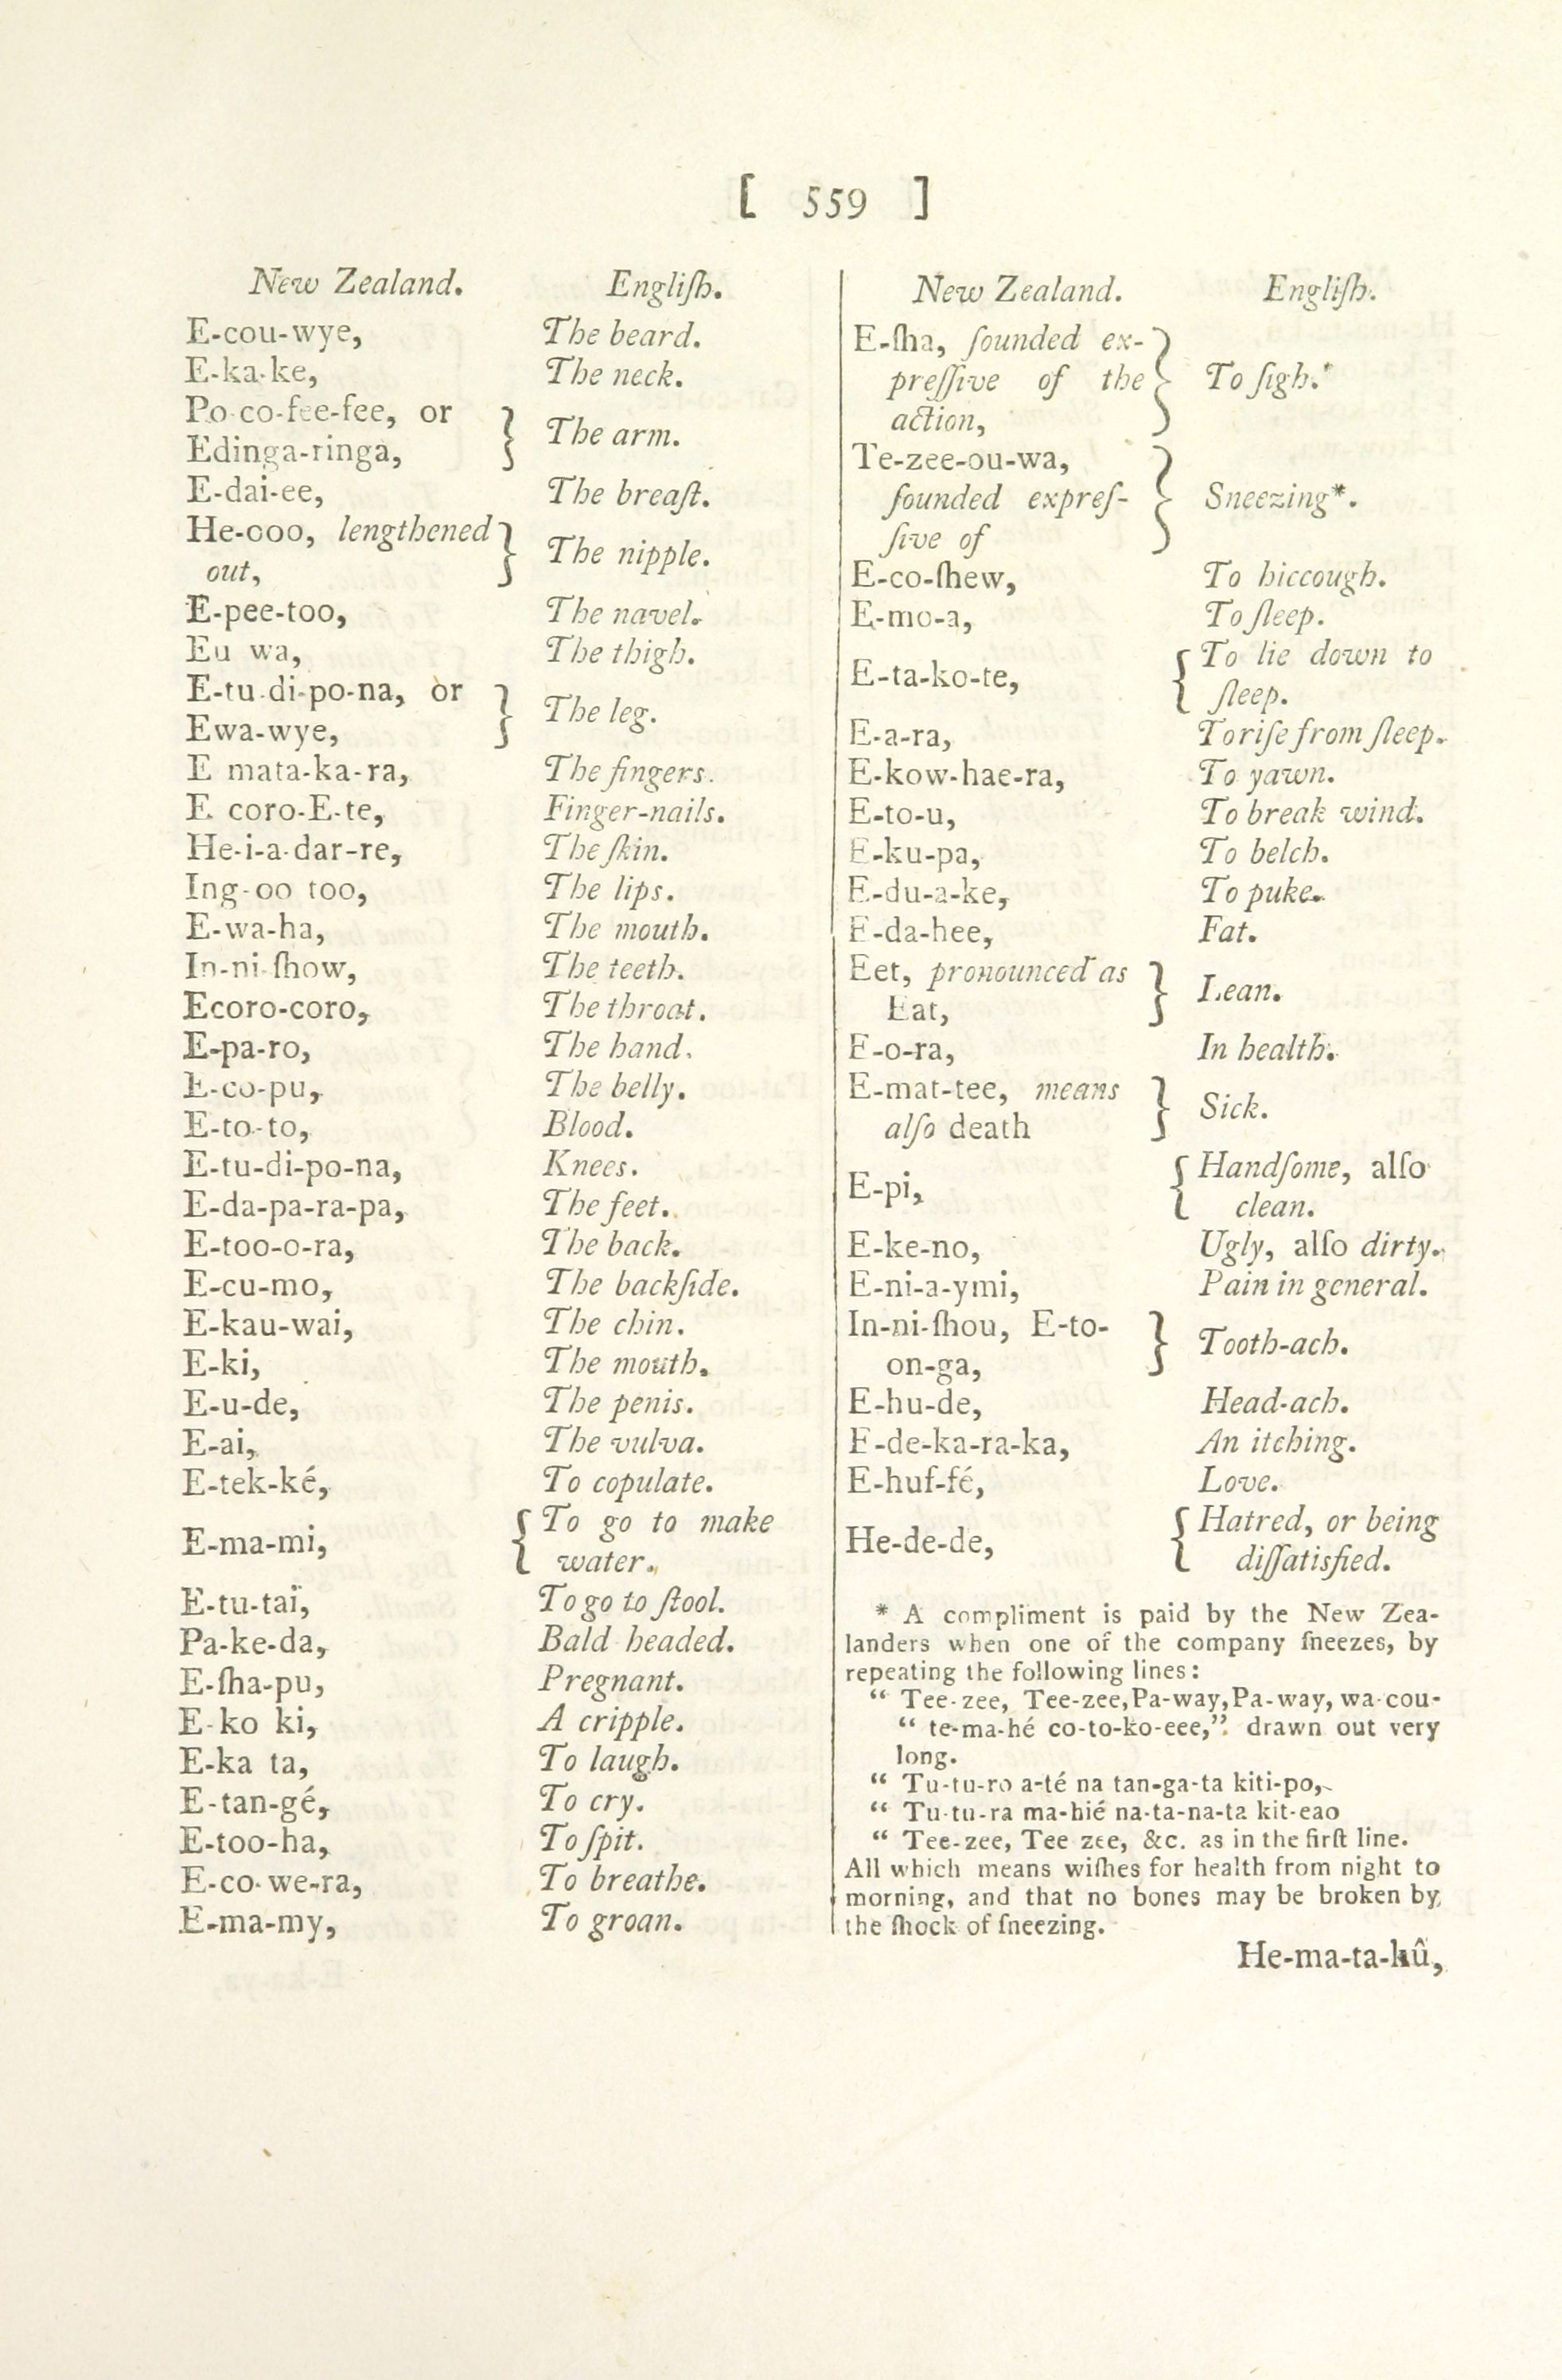 [ 559 ]
New Zealand. Engliſh.
E-cou-wye, The beard.
E-ka-ke, The neck.
Po-co-fee-fee, or
Edinga-ringa, } The arm.
E-dai-ee, The breaſt.
He-ooo, lengthened
out, } The nipple.
E-pee-too, The navel.
Eu wa, The thigh.
E-tu-di-po-na, or
Ewa-wye, } The leg.
E mata-ka-ra, The fingers.
E coro-E-te, Finger-nails.
He-i-a-dar-re, The ſkin.
Ing-oo too, The lips.
E-wa-ha, The mouth.
In-ni-ſhow, The teeth.
Ecoro-coro, The throat.
E-pa-ro, The hand.
E-co-pu, The belly.
E-to-to, Blood.
E-tu-di-po-na, Knees.
E-da-pa-ra-pa, The feet.
E-too-o-ra, The back.
E-cu-mo, The backſide.
E-kau-wai, The chin.
E-ki, The mouth.
E-u-de, The penis.
E-ai, The vulva.
E-tek-ké, To copulate.
E-ma-mi, { To go to make
water.
E-tu-taï, To go to ſtool.
Pa-ke-da, Bald headed.
E-ſha-pu, Pregnant.
E-ko ki, A cripple.
E-ka ta, To laugh.
E-tan-gé, To cry.
E-too-ha, To ſpit.
E-co-we-ra, To breathe.
E-ma-my, To groan.
New Zealand. Engliſh.
E-ſha, ſounded ex-
preſſive of the } To ſigh.
action,
Te-zee-ou-wa,
ſounded expreſ- } Sneezing*.
ſive of
E-co-ſhew, To hiccough.
E-mo-a, To ſleep.
E-ta-ko-te, { To lie down to
ſleep.
E-a-ra, To riſe from ſleep.
E-kow-hae-ra, To yawn.
E-to-u, To break wind.
E-ku-pa, To belch.
E-du-a-ke, To puke.
E-da-hee, Fat.
Eet, pronounced as
Eat, } Lean.
E-o-ra, In health.
E-mat-tee, means
alſo death } Sick.
E-pi, { Handſome, alſo
clean.
E-ke-no, Ugly, alſo dirty.
E-ni-a-ymi, Pain in general.
In-ni-ſhou, E-to-
on-ga, } Tooth-ach.
E-hu-de, Head-ach.
E-de-ka-ra-ka, An itching.
E-huf-fé, Love.
He-de-de, { Hatred, or being
diſſatisfied.
* A compliment is paid by the New Zea-
landers when one of the company ſneezes, by
repeating the following lines:
“ Tee-zee, Tee-zee, Pa-way, Pa-way, wa-cou-
“ te-ma-hé co-to-ko-eee,” drawn out very
long.
“ Tu-tu-ro a-té na tan-ga-ta kiti-po,
“ Tu-tu-ra ma-hié na-ta-na-ta kit-eao
“ Tee-zee, Tee zee, &c. as in the firſt line.
All which means wiſhes for health from night to
morning, and that no bones may be broken by
the ſhock of ſneezing.
He-ma-ta-kû,